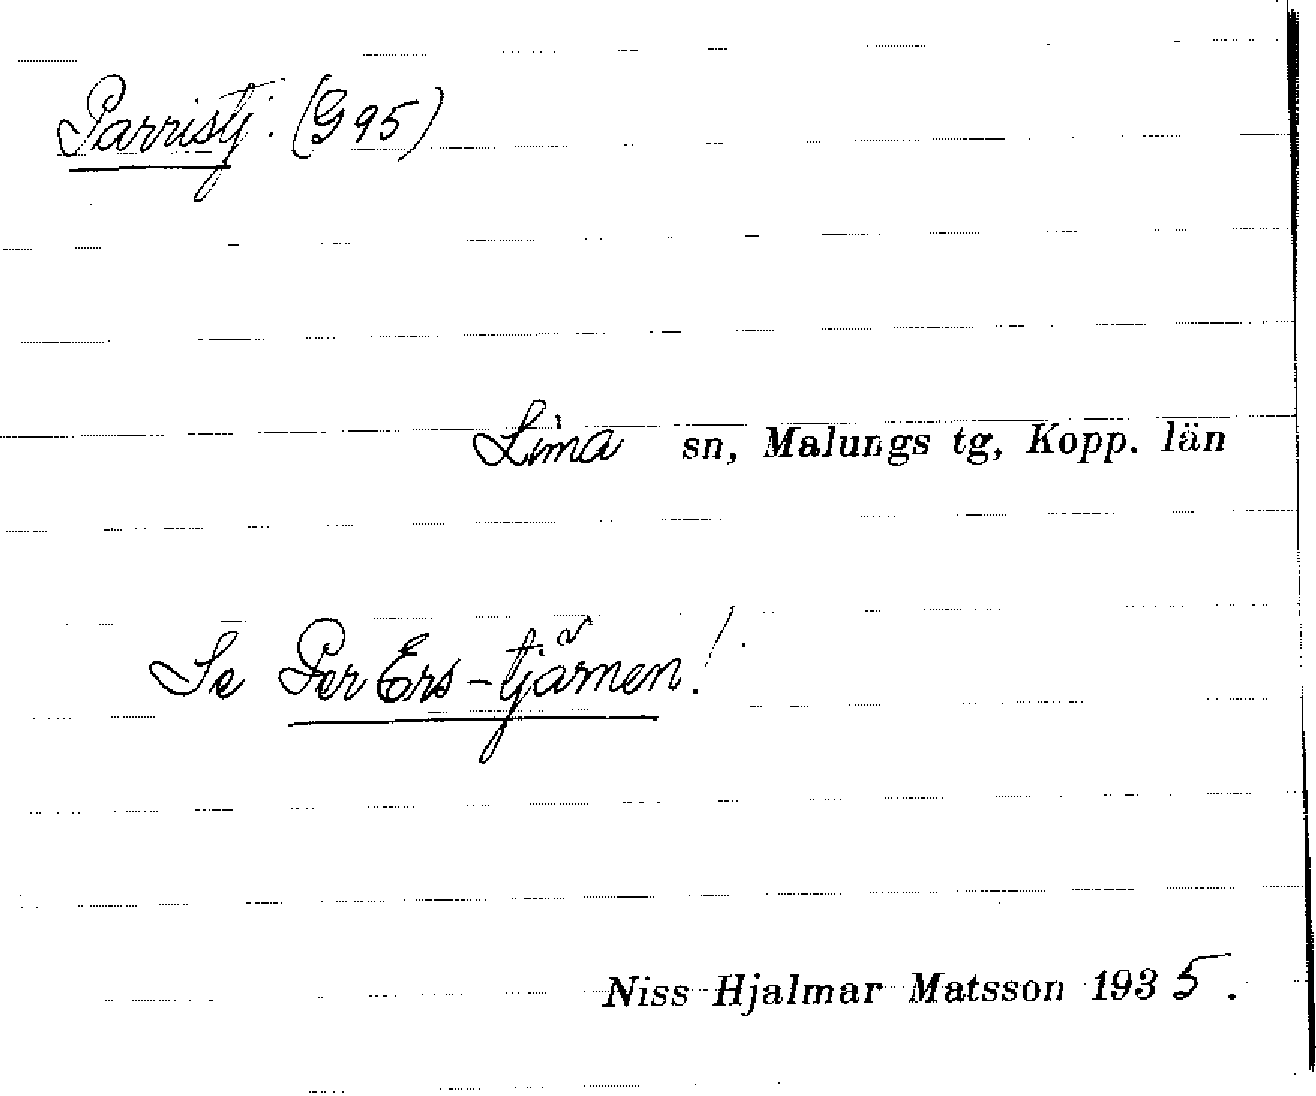 Parristj: (G 95)
Lima sn, Malungs tg, Kopp. län
Se Per Ers-tjärnen!
Niss Hjalmar Matsson 1935.